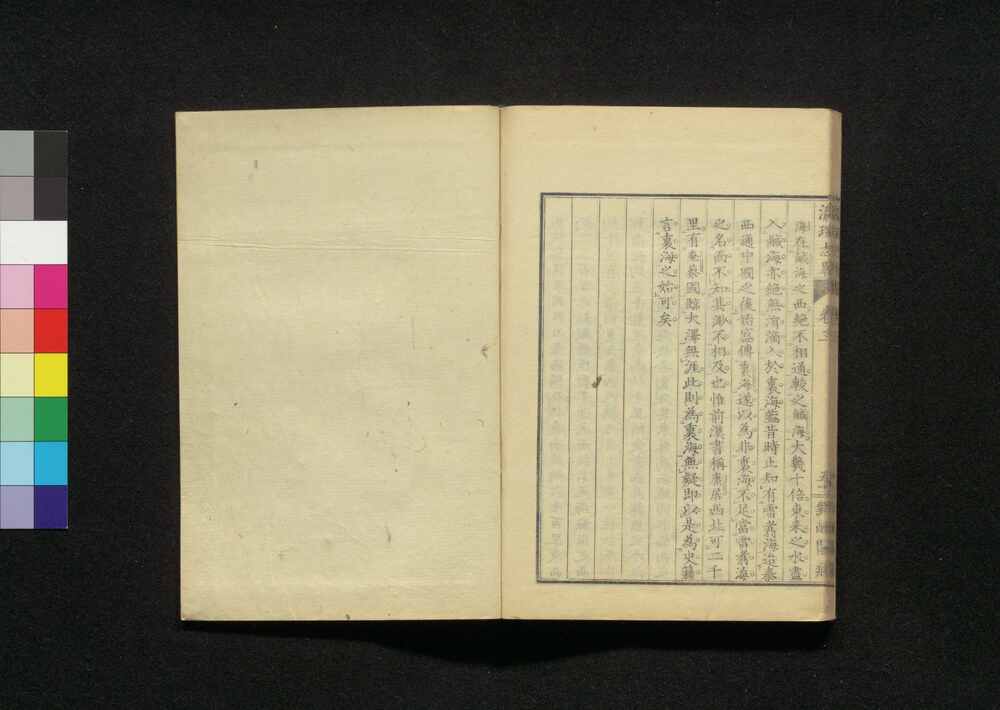 海在鹹海之西絶不相通較之鹹海大幾十倍東來之水盡
入鹹海亦絶無涓滴入於裏海葢昔時止知有雷翥海迨泰
西通中國之後始盛傳裏海遂以為非裏海不足當雷翥海
之名而不知其渺不相及也惟前漢書稱康居西北可二千
里有奄蔡國臨大澤無涯此則為裏海無疑即以是為史籍
言裏海之始可矣
卷三